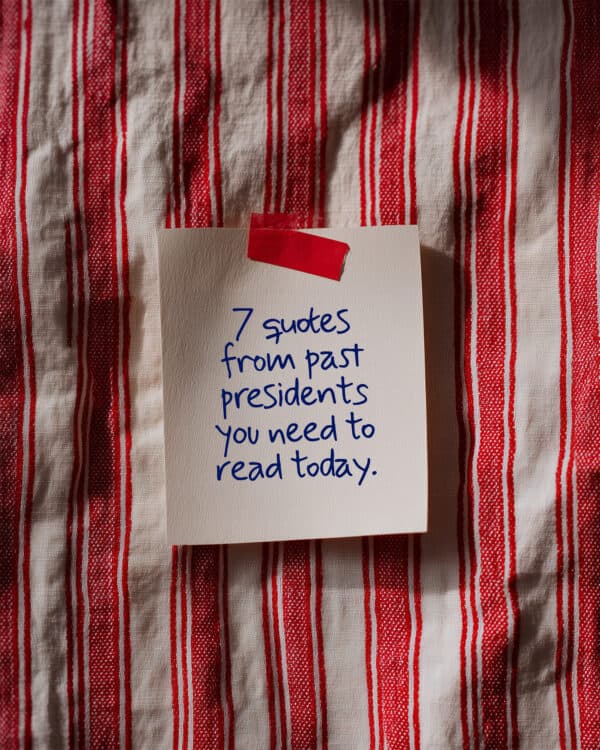 7 quotes
from past
presidents
you need to
read today.